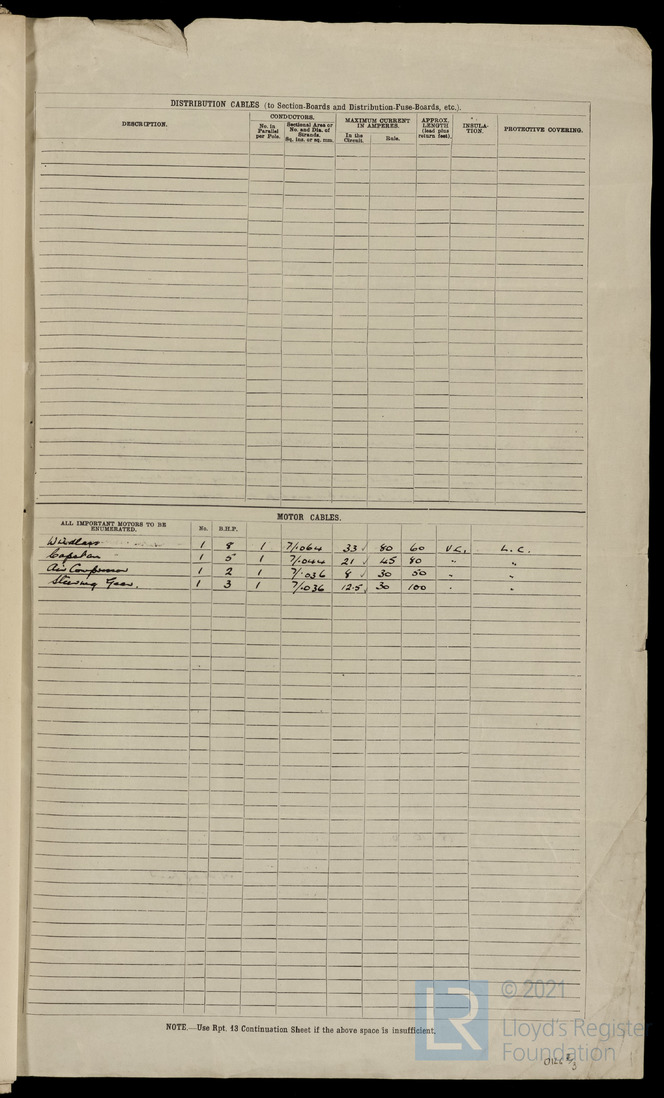 DISTRIBUTION CABLES (to Section-Boards and Distribution-Fuse-Boards, etc.).
DESCRIPTION. CONDUCTORS. No. in Parallel per Pole. Sectional Area or No. and Dia. of Strands. Sq. ins. or sq. mm. MAXIMUM CURRENT IN AMPERES. In the Circuit. Rule. APPROX. LENGTH (lead plus return feet). INSULATION. PROTECTIVE COVERING.
MOTOR CABLES.
ALL IMPORTANT MOTORS TO BE ENUMERATED. No. B.H.P.
Windlass 1 8 1 7/.064 33 80 60 V.C. L.C.
Capstan 1 5 1 7/.044 21 45 80 " "
Air Compressor 1 2 1 7/.036 8 30 50 " "
Steering Gear. 1 3 1 7/.036 12.5 30 100 " "
NOTE.—Use Rpt. 13 Continuation Sheet if the above space is insufficient.
LR © 2021
Lloyd's Register
Foundation